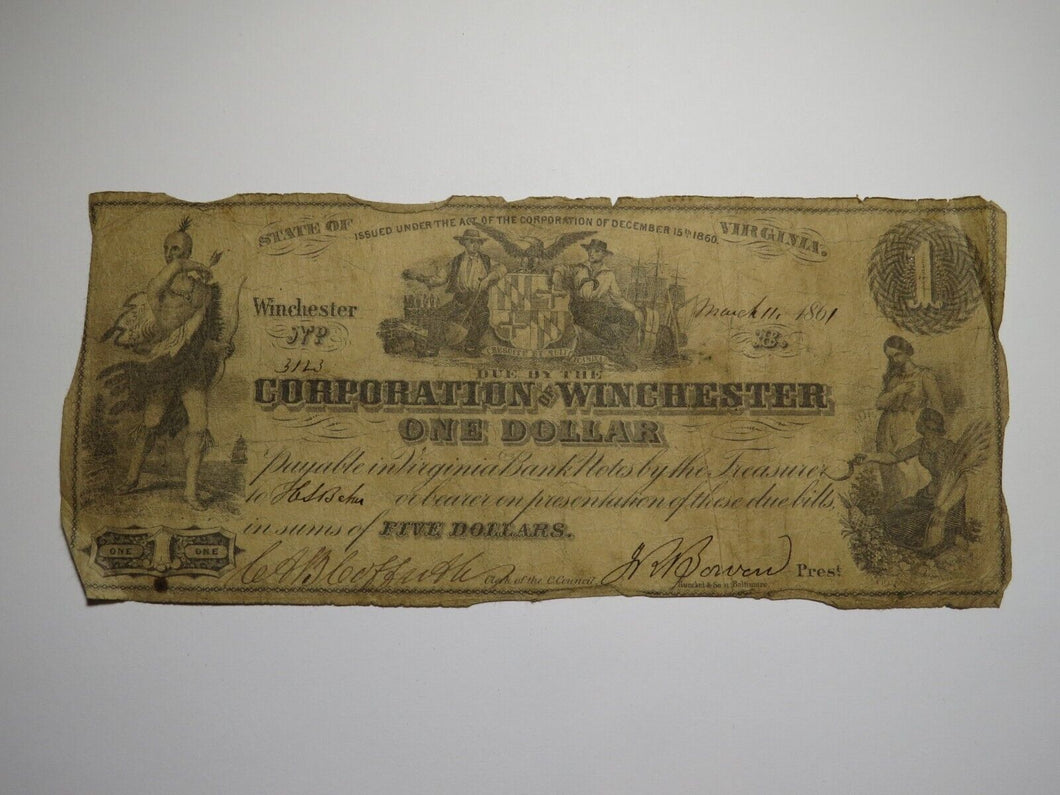 STATE OF ISSUED UNDER THE ACT OF THE CORPORATION OF DECEMBER 15th 1860. VIRGINIA.
1
Winchester
March 11, 1861
B.
3123
DUE BY THE
CORPORATION OF WINCHESTER
ONE DOLLAR
Payable in Virginia Bank Notes by the Treasurer
to or bearer on presentation of these due bills,
in sums of FIVE DOLLARS.
ONE 1 ONE
Clerk of the C. Council
J R Bowen Prest
& Son Baltimore